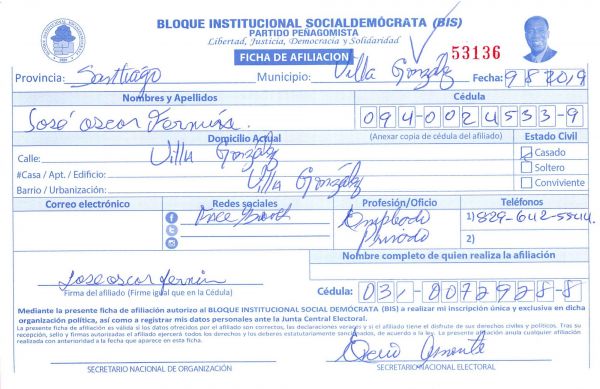 BLOQUE INSTITUCIONAL SOCIALDEMÓCRATA (BIS)
PARTIDO PEÑAGOMISTA
Libertad, Justicia, Democracia y Solidaridad
FICHA DE AFILIACION 53136
Provincia: Santiago Municipio: Villa González Fecha: 9 8 2019
Nombres y Apellidos Cédula
José oscar Fermín. 094-0024533-9
Domicilio Actual (Anexar copia de cédula del afiliado) Estado Civil
Calle: Villa González Casado
#Casa / Apt. / Edificio: Soltero
Barrio / Urbanización: Villa González Conviviente
Correo electrónico Redes sociales Profesión/Oficio Teléfonos
Empleado 1) 829-642-5544
Privado 2)
Nombre completo de quien realiza la afiliación
José oscar fermín
Firma del afiliado (Firme igual que en la Cédula) Cédula: 031-0072928-8
Mediante la presente ficha de afiliación autorizo al BLOQUE INSTITUCIONAL SOCIAL DEMÓCRATA (BIS) a realizar mi inscripción única y exclusiva en dicha
organización política, así como a registrar mis datos personales ante la Junta Central Electoral.
La presente ficha de afiliación es válida si los datos ofrecidos por el afiliado son correctos, las declaraciones veraces y si el afiliado tiene el disfrute de sus derechos civiles y políticos. Tras su
recepción, sello y firmas autorizadas el afiliado ejercerá todos los derechos y los deberes estatutariamente sancionados, de acuerdo a la ley. La presente afiliación anula cualquier afiliación
realizada con anterioridad a la fecha que aparece en esta ficha.
SECRETARIO NACIONAL DE ORGANIZACIÓN SECRETARIO NACIONAL ELECTORAL